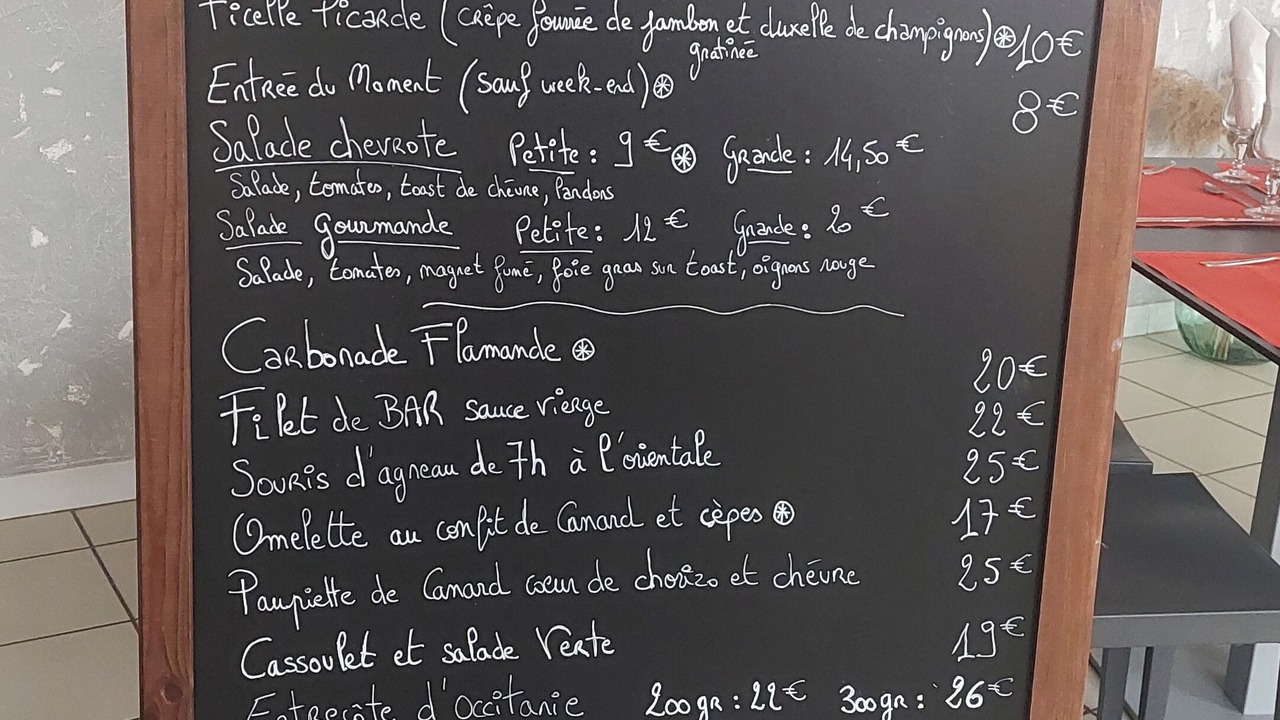 Ficelle Picarde (crêpe fourrée de jambon et duxelle de champignons) 10€
gratinée
Entrée du Moment (sauf week-end) 8€
Salade chevrote Petite : 9€ Grande : 14,50€
Salade, tomates, toast de chèvre, lardons
Salade Gourmande Petite : 12€ Grande : 20€
Salade, tomates, magret fumé, foie gras sur toast, oignons rouge
Carbonade Flamande 20€
Filet de BAR sauce vierge 22€
Souris d'agneau de 7h à l'orientale 25€
Omelette au confit de Canard et cèpes 17€
Paupiette de Canard cœur de chorizo et chévre 25€
Cassoulet et salade Verte 19€
Entrecôte d'Occitanie 200gr : 22€ 300gr : 26€